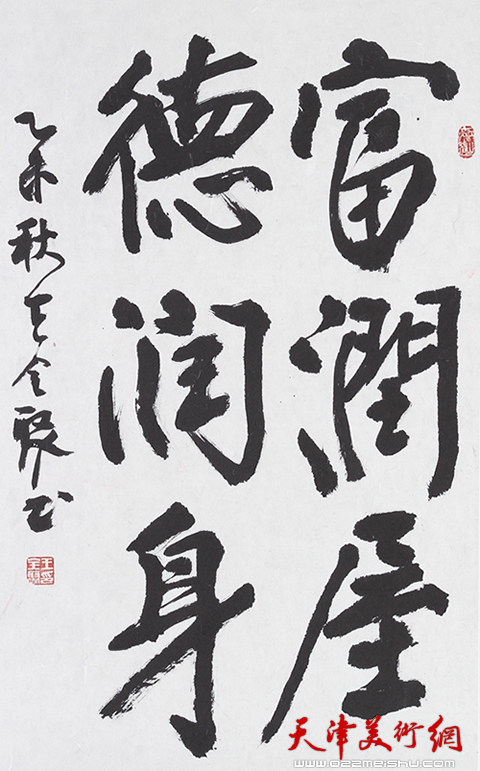 富潤屋
德润身
乙未秋王全聚书
天津美術網
www.022meishu.com